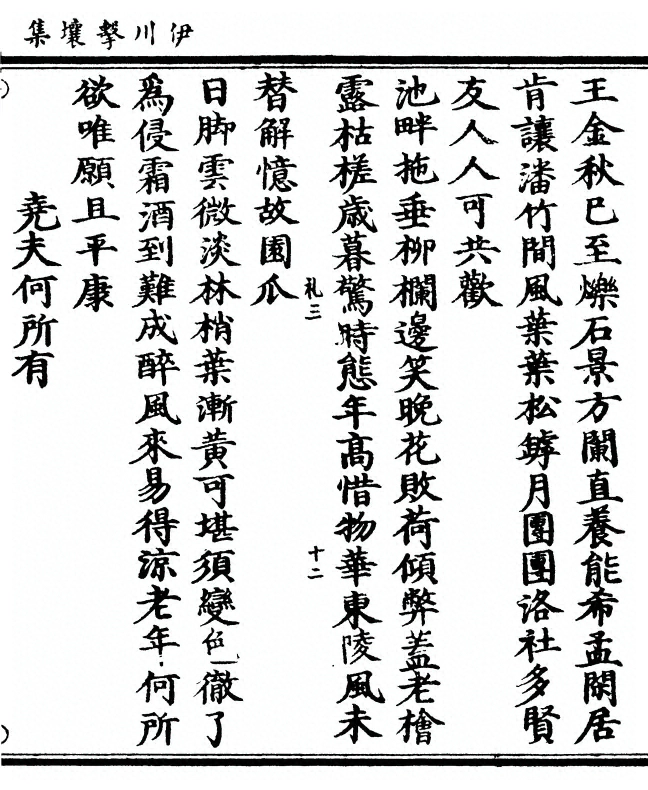 伊川擊壤集
王金秋巳至爍石景方闌直養能希孟閑居
肯讓潘竹間風葉葉松罅月團團洛社多賢
友人人可共歡
池畔拖垂柳欄邊笑晚花敗荷傾弊蓋老檜
露枯槎歳暮驚時態年髙惜物華東陵風未
札三 十二
替解憶故園瓜
日脚雲微淡林梢葉漸黃可堪須變色徹了
爲侵霜酒到難成醉風來易得涼老年何所
欲唯願且平康
堯夫何所有